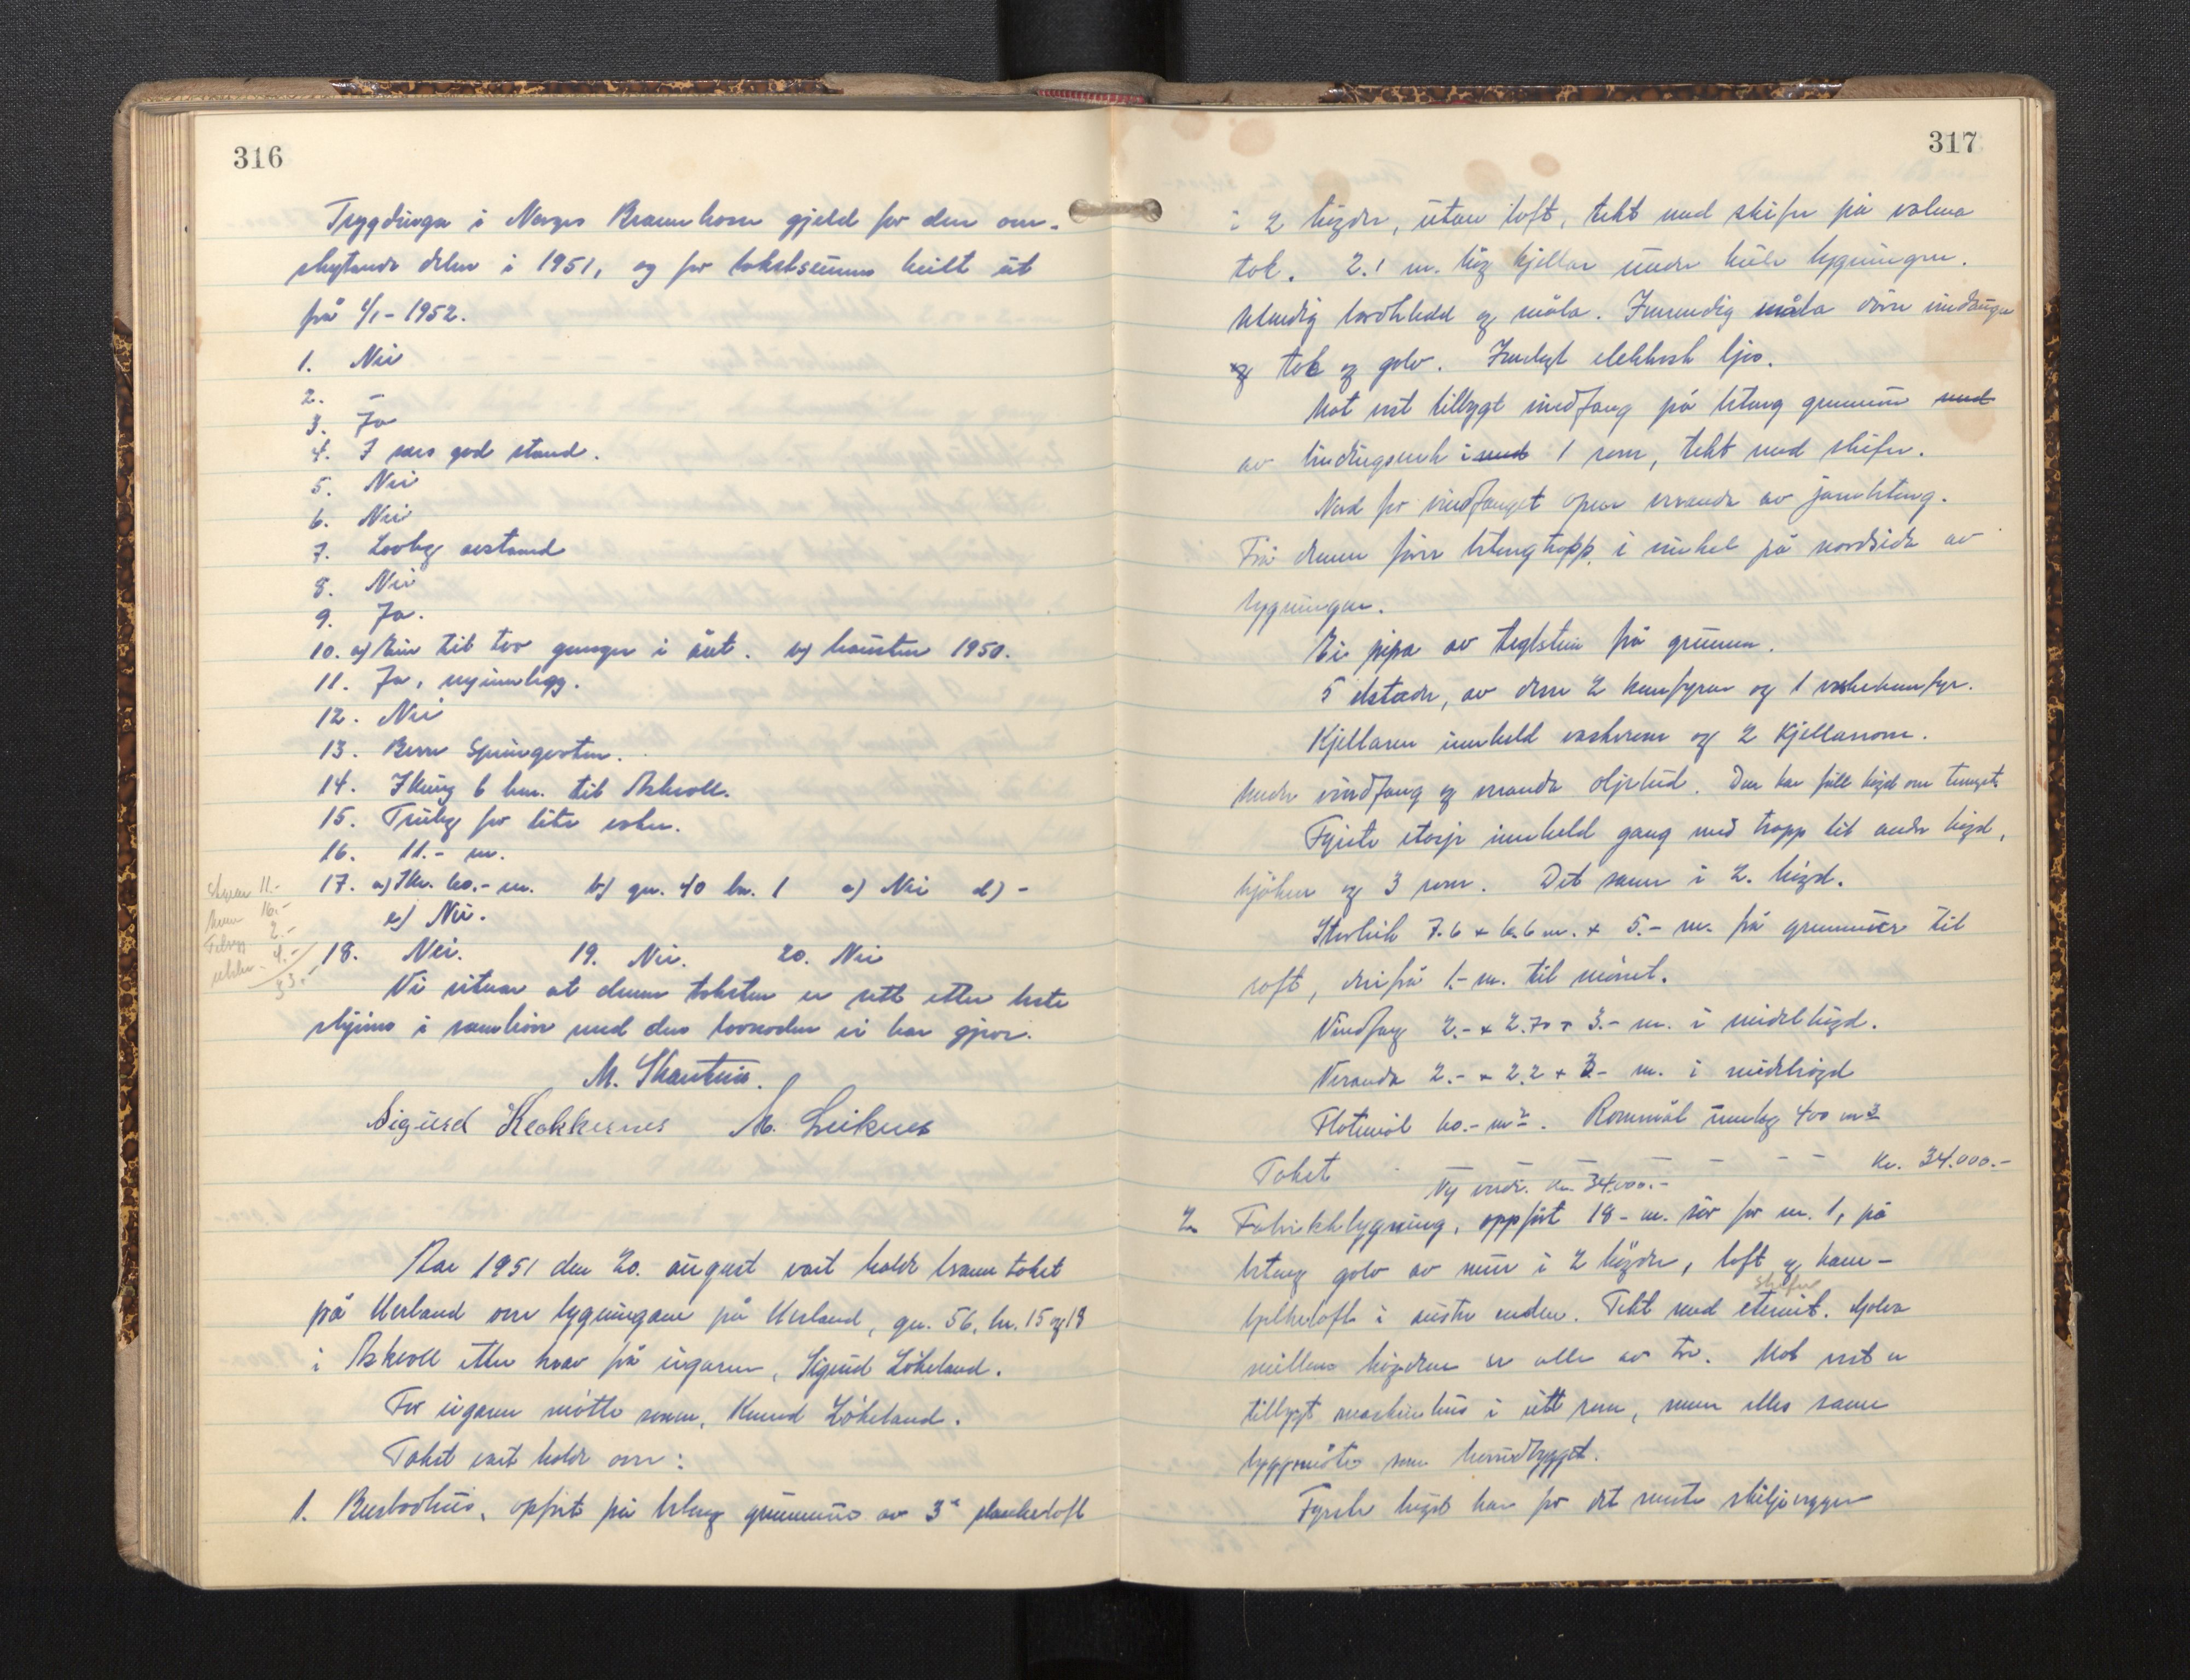 316
Trygdinga i Norges Brannkasse gjeld for den om-
skytande delen i 1951, og for takstsummen heilt ut
frå 1/1-1952.
1. Nei
2. –
3. Ja
4. I god stand.
5. Nei
6. Nei
7. Lovleg avstand
8. Nei
9. Ja.
10. a) Ein til tvo gonger i året. b) hausten 1950.
11. Ja, 
12. Nei
13. Berre 
14. Ikring 6 km. til Askvoll.
15. Truleg for lite vatn.
16. 11.- m.
17. a) Ikr. 60.- m. b) gn. 40 br. 1 c) Nei d) -
e) Nei.
18. Nei. 19. Nei. 20. Nei
Skjema 11.-
16.-
2.-
4.-
33.-
Vi vitnar at denne taksten er sett etter beste
skjøn i samhøve med den lovnaden vi har gjeve.
M. 
Sigurd M. Leiknes
Aar 1951 den 20. august vart halde branntakst
på Herland over bygningane på Herland, gn. 56, br. 15 og 18
i Askvoll etter krav frå eigaren, Sigurd Løkeland.
For eigaren møtte sonen, Knud Løkeland.
Takst vart halde over:
1. Bustadhus, oppført på betong grunnmur av 3" plankeloft
317
i 2 høgder, utan loft, tekt med skifer på valma
tak. 2.1 m. høg kjellar under heile bygningen.
Utvendig bordkledd og måla. Innvendig måla
og tak og golv. Innlagt elektrisk ljos.
Mot vest tilbygt vindfang på betong grunnmur med
av bindingsverk i med 1 rom, tekt med skifer.
Nord for vindfanget open veranda av jarnbetong.
Frå denne fører betongtropp i vinkel på nordsida av
bygningen.
Ei pipa av teglstein frå grunnen.
5 eldstader, av desse 2 komfyrar og 1 vaskekomfyr.
Kjellaren inneheld vaskerom og 2 kjellarrom.
Under vindfang og veranda Den har full høgd
Fyrste etasje inneheld gang med tropp til andre høgd,
kjøken og 3 rom. Det same i 2. høgd.
Storleik 7.6 x 6.6 m. x 5.- m. frå grunnmur til
loft, derifrå 1.- m. til mønet.
Vindfang 2.- x 2.70 x 3.- m. i middelhøgd.
Veranda 2.- x 2.2 x 3.- m. i middelhøgd
Flatemål 60.- m2. Rommål umlag 400 m3
Takst – – – – – – – kr. 34.000.-
Ny verdi. kr. 34.000.-
2. Fabrikkbygning, oppført 18.- m. sør for nr. 1, på
betong golv av mur i 2 høgder, loft og ham-
skifer
bjelkeloft i austre enden. Tekt med eternit. Golva
millom høgdene er alle av tre. Mot vest er
tilbygt maskinhus i eitt rom, men elles same
byggemåte som hovudbygget.
Fyrste høgd har for det meste skiljevegger